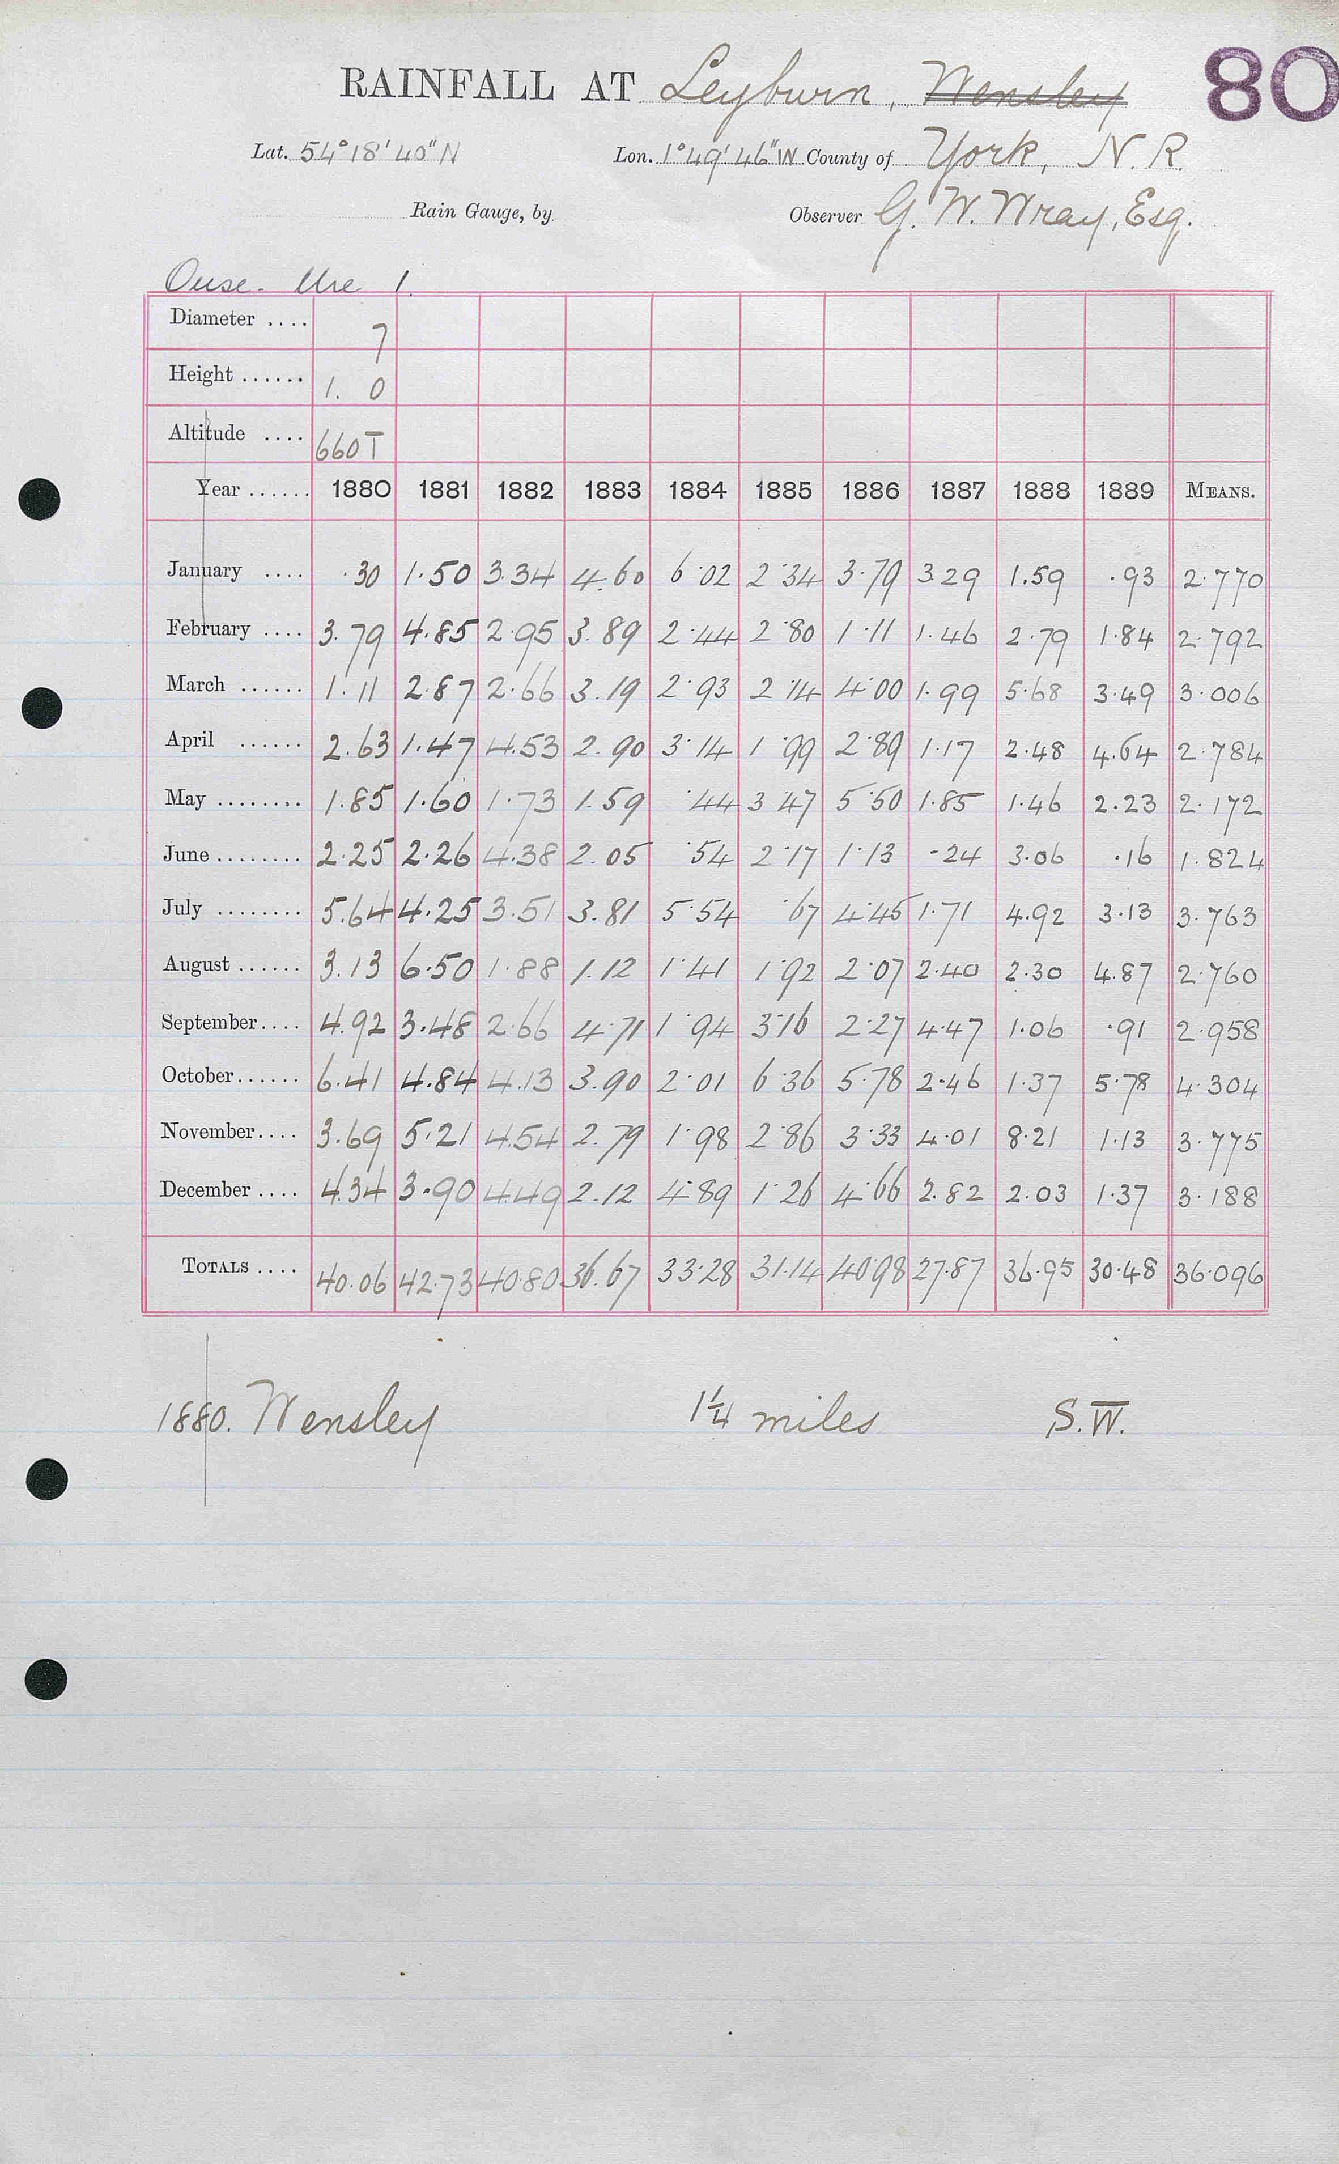 80
RAINFALL AT Leyburn, Wensley
Lat. 54°18'40"N Lon. 1°49'46"W County of York, N.R.
Rain Gauge, by Observer G. W. Wray, Esq.
Ouse. Ure 1.
Diameter .... 7
Height ...... 1. 0
Altitude .... 660T
Year ...... 1880 1881 1882 1883 1884 1885 1886 1887 1888 1889 MEANS.
January .... .30 1.50 3.34 4.60 6.02 2.34 3.79 3.29 1.59 .93 2.770
February .... 3.79 4.85 2.95 3.89 2.44 2.80 1.11 1.46 2.79 1.84 2.792
March ...... 1.11 2.87 2.66 3.19 2.93 2.14 4.00 1.99 5.68 3.49 3.006
April ...... 2.63 1.47 4.53 2.90 3.14 1.99 2.89 1.17 2.48 4.64 2.784
May ........ 1.85 1.60 1.73 1.59 .44 3.47 5.50 1.85 1.46 2.23 2.172
June ........ 2.25 2.26 4.38 2.05 .54 2.17 1.13 .24 3.06 .16 1.824
July ........ 5.64 4.25 3.51 3.81 5.54 .67 4.45 1.71 4.92 3.13 3.763
August ...... 3.13 6.50 1.88 1.12 1.41 1.92 2.07 2.40 2.30 4.87 2.760
September .... 4.92 3.48 2.66 4.71 1.94 3.16 2.27 4.47 1.06 .91 2.958
October ...... 6.41 4.84 4.13 3.90 2.01 6.36 5.78 2.46 1.37 5.78 4.304
November .... 3.69 5.21 4.54 2.79 1.98 2.86 3.33 4.01 8.21 1.13 3.775
December .... 4.34 3.90 4.49 2.12 4.89 1.26 4.66 2.82 2.03 1.37 3.188
TOTALS .... 40.06 42.73 40.80 36.67 33.28 31.14 40.98 27.87 36.95 30.48 36.096
1880. Wensley 1¼ miles S.W.